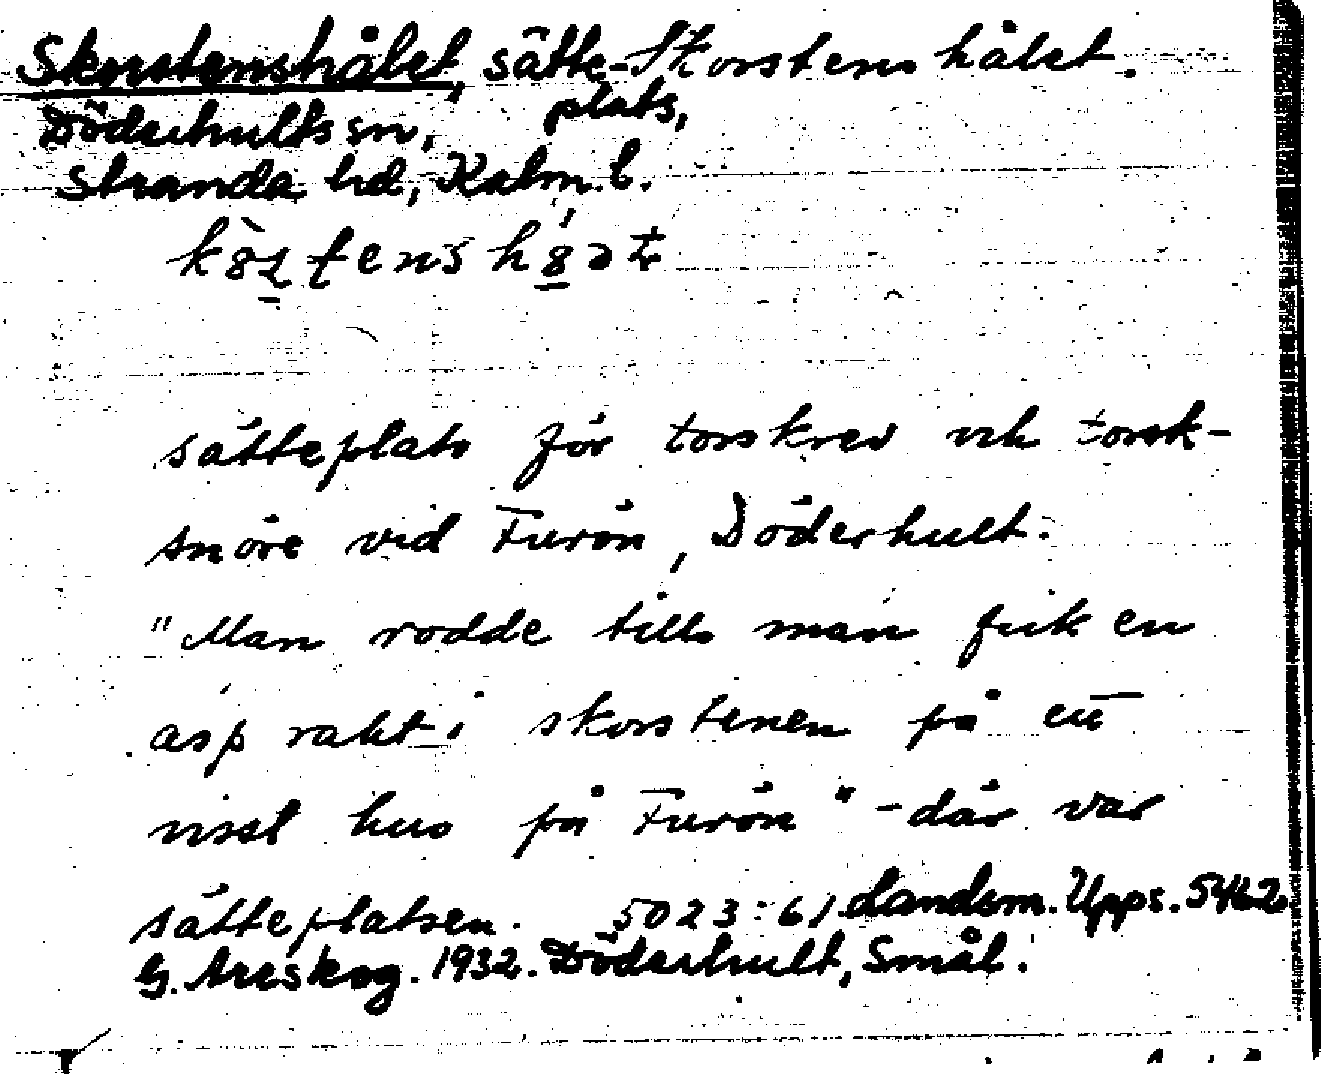 Skorstenshålet, sätte- Skorstenshålet.
Döderhults sn, plats,
Stranda hd, Kalm. l.
sätteplats för torskrev och torsk-
snöre vid Furön, Döderhult.
"Man rodde tills man fick en
asp rakt i skorstenen på ett
visst hus på Furön" - där var
sätteplatsen. 5023:61 Landsm. Upps. 5462
G. Areskog. 1932. Döderhult, Smål.